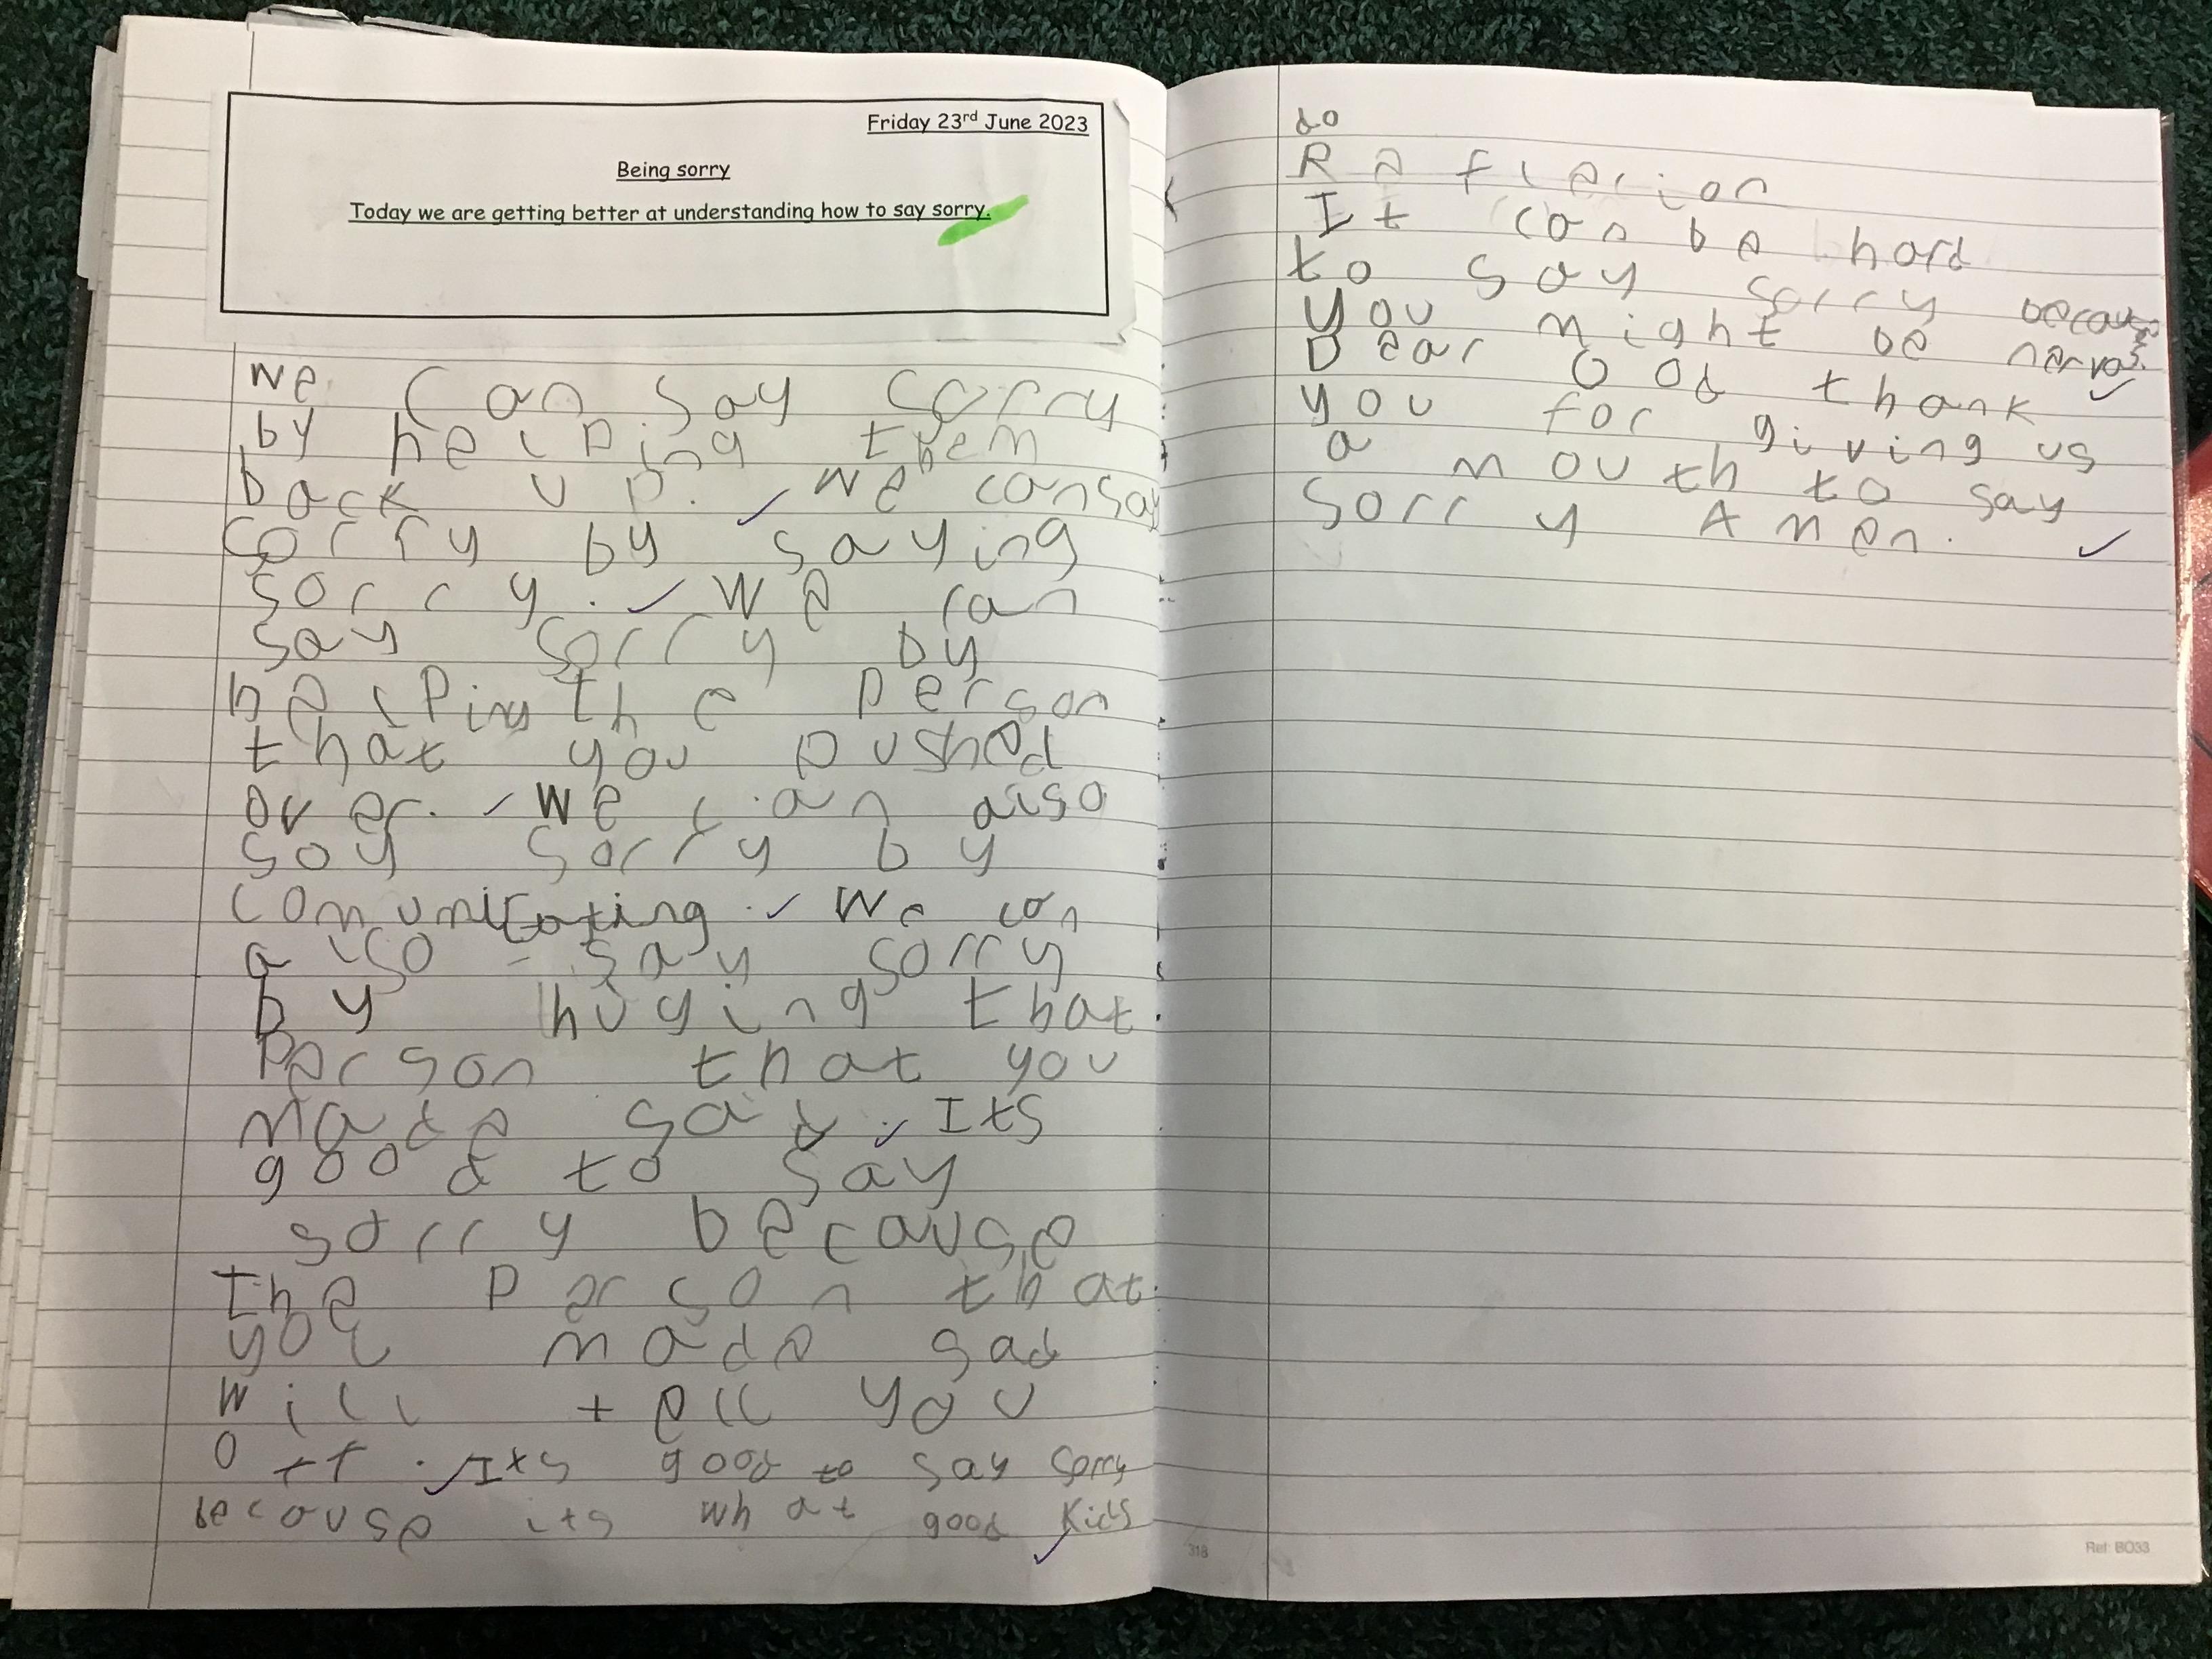 Friday 23rd June 2023
Being sorry
Today we are getting better at understanding how to say sorry.
we can say sorry
by helping them
back up. we can say
sorry by saying
sorry. We can
say sorry by
helping the person
that you pushed
over. We can also
say sorry by
comunicating. We can
also say sorry
by huging that
person that you
made sad. Its
good to say
sorry because
the person that
you made sad
will tell you
off. Its good to say sorry
because its what good kids
do
Reflecion
It can be hard
to say sorry because
you might be nervas.
Dear God thank
you for giving us
a mouth to say
sorry Amen.
318
Ref: BO33